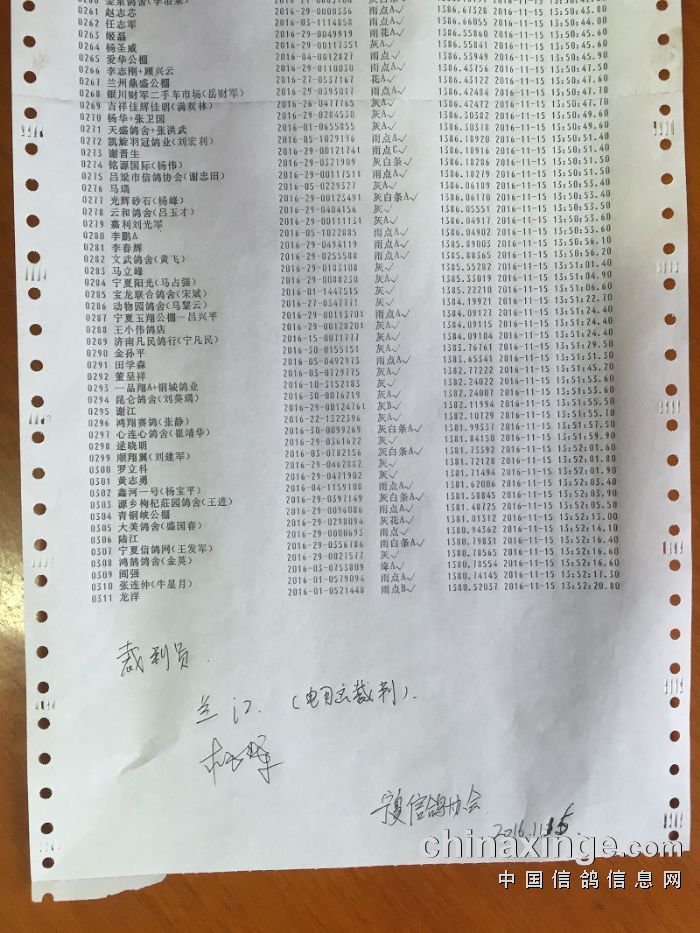 0261 赵志芯 2016-29-0000336 雨点A✓ 1386.67328 2016-11-15 13:50:43.80
0262 任志军 2016-03-1114058 雨点✓ 1386.66055 2016-11-15 13:50:44.80
0263 姬磊 2016-29-0049919 雨花A✓ 1386.55860 2016-11-15 13:50:45.60
0264 杨圣威 2016-29-00117351 灰✓ 1386.55841 2016-11-15 13:50:45.60
0265 爱华公棚 2016-04-0012827 雨点✓ 1386.53949 2016-11-15 13:50:45.90
0266 李志刚+顾兴云 2016-29-0110030 雨点A✓ 1386.43756 2016-11-15 13:50:47.60
0267 兰州鼎盛公棚 2016-27-0537167 花A✓ 1386.43122 2016-11-15 13:50:47.60
0268 银川财军二手车市场(岳财军) 2016-29-0393017 雨点✓ 1386.42484 2016-11-15 13:50:47.70
0269 吉祥佳辉佳明(满双林) 2016-26-0477765 灰✓ 1386.42472 2016-11-15 13:50:47.70
0270 杨华+张卫国 2016-29-0284530 灰A✓ 1386.30382 2016-11-15 13:50:49.60
0271 天盛鸽舍(张洪武) 2016-01-0655855 灰A✓ 1386.30378 2016-11-15 13:50:49.60
0272 凯旋羽冠鸽业(刘宏利) 2016-05-1029196 雨点A✓ 1386.18928 2016-11-15 13:50:51.40
0273 谢晋生 2016-29-00121741 雨点C✓ 1386.18916 2016-11-15 13:50:51.40
0274 铭源国际(杨伟) 2016-29-0321909 灰白条✓ 1386.18286 2016-11-15 13:50:51.50
0275 吕梁市信鸽协会(谢忠田) 2016-29-00117511 雨点A✓ 1386.18279 2016-11-15 13:50:51.50
0276 马瑞 2016-05-0229327 灰A✓ 1386.06189 2016-11-15 13:50:53.40
0277 光辉砂石(杨峰) 2016-29-00123491 灰白条A✓ 1386.06170 2016-11-15 13:50:53.40
0278 云和鸽舍(吕玉才) 2016-29-0404156 灰✓ 1386.05551 2016-11-15 13:50:53.50
0279 嘉利刘光军 2016-29-00111131 灰A✓ 1386.04917 2016-11-15 13:50:53.60
0280 李鹏A 2016-05-1022885 雨点A✓ 1385.04902 2016-11-15 13:50:53.60
0281 李春辉 2016-29-0494119 雨点A✓ 1385.89003 2016-11-15 13:50:56.10
0282 文武鸽舍(黄飞) 2016-29-0255588 雨点A✓ 1385.88365 2016-11-15 13:50:56.20
0283 马立峰 2016-29-0183108 灰✓ 1385.55282 2016-11-15 13:51:01.40
0284 宁夏阳光(马占强) 2016-29-0088230 灰A✓ 1385.33019 2016-11-15 13:51:04.90
0285 宝龙联合鸽舍(宋斌) 2016-01-1447515 灰✓ 1385.22210 2016-11-15 13:51:06.60
0286 动物园鸽舍(马黎云) 2016-27-0347771 灰✓ 1384.19921 2016-11-15 13:51:22.70
0287 宁夏玉翔公棚－吕兴平 2016-29-00113701 雨点A✓ 1384.09127 2016-11-15 13:51:24.40
0288 王小伟鸽店 2016-29-00128201 灰A✓ 1384.09115 2016-11-15 13:51:24.40
0289 济南凡民鸽行(宁凡民) 2016-15-0071777 灰A✓ 1384.09104 2016-11-15 13:51:24.40
0290 金孙平 2016-30-0153151 灰A✓ 1383.76761 2016-11-15 13:51:29.50
0291 田学森 2016-05-0492973 雨点A✓ 1383.65341 2016-11-15 13:51:31.30
0292 董呈祥 2016-03-0729775 灰A✓ 1382.77222 2016-11-15 13:51:45.20
0293 一品翔A+铜城鸽业 2016-10-3152183 灰✓ 1382.24022 2016-11-15 13:51:53.60
0294 昆仑鸽舍(刘葵瑞) 2016-30-0076219 灰A✓ 1382.24007 2016-11-15 13:51:53.60
0295 谢江 2016-29-00124761 灰B✓ 1382.11994 2016-11-15 13:51:55.50
0296 鸿翔赛鸽(张静) 2016-22-1322396 灰A✓ 1382.10729 2016-11-15 13:51:55.70
0297 心连心鸽舍(崔靖华) 2016-30-0099269 灰白条A✓ 1381.99337 2016-11-15 13:51:57.50
0298 逯晓明 2016-29-0361622 灰✓ 1381.84150 2016-11-15 13:51:59.90
0299 顺翔翼(刘建军) 2016-03-0782156 灰白条A✓ 1381.73392 2016-11-15 13:52:01.60
0300 罗立科 2016-29-0462882 灰✓ 1381.72128 2016-11-15 13:52:01.80
0301 黄志勇 2016-29-0471902 灰✓ 1381.71494 2016-11-15 13:52:01.90
0302 鑫河一号(杨宝平) 2016-04-1159108 雨点A✓ 1381.62006 2016-11-15 13:52:03.40
0303 源乡枸杞莊园鸽舍(王进) 2016-29-0397149 灰白条A✓ 1381.58845 2016-11-15 13:52:03.90
0304 青铜峡公棚 2016-29-0094086 雨点A✓ 1381.48725 2016-11-15 13:52:05.50
0305 大美鸽舍(盛国春) 2016-29-0298094 灰花A✓ 1381.01312 2016-11-15 13:52:13.00
0306 陆江 2016-29-0000693 雨点✓ 1380.94362 2016-11-15 13:52:14.10
0307 宁夏信鸽网(王发军) 2016-29-0356786 雨白条A✓ 1380.79831 2016-11-15 13:52:16.40
0308 鸿鹄鸽舍(金英) 2016-29-0027572 灰✓ 1380.78565 2016-11-15 13:52:16.60
0309 阎强 2016-03-0753809 绛A✓ 1380.78554 2016-11-15 13:52:16.60
0310 张连仲(牛星月) 2016-01-0579094 雨点A✓ 1380.74145 2016-11-15 13:52:17.30
0311 龙洋 2016-01-0521448 雨点B✓ 1380.52037 2016-11-15 13:52:20.80
裁判员
兰江 (电目云裁判).
宁夏信鸽协会
2016.11.15
chinaxinge.com
中国信鸽信息网